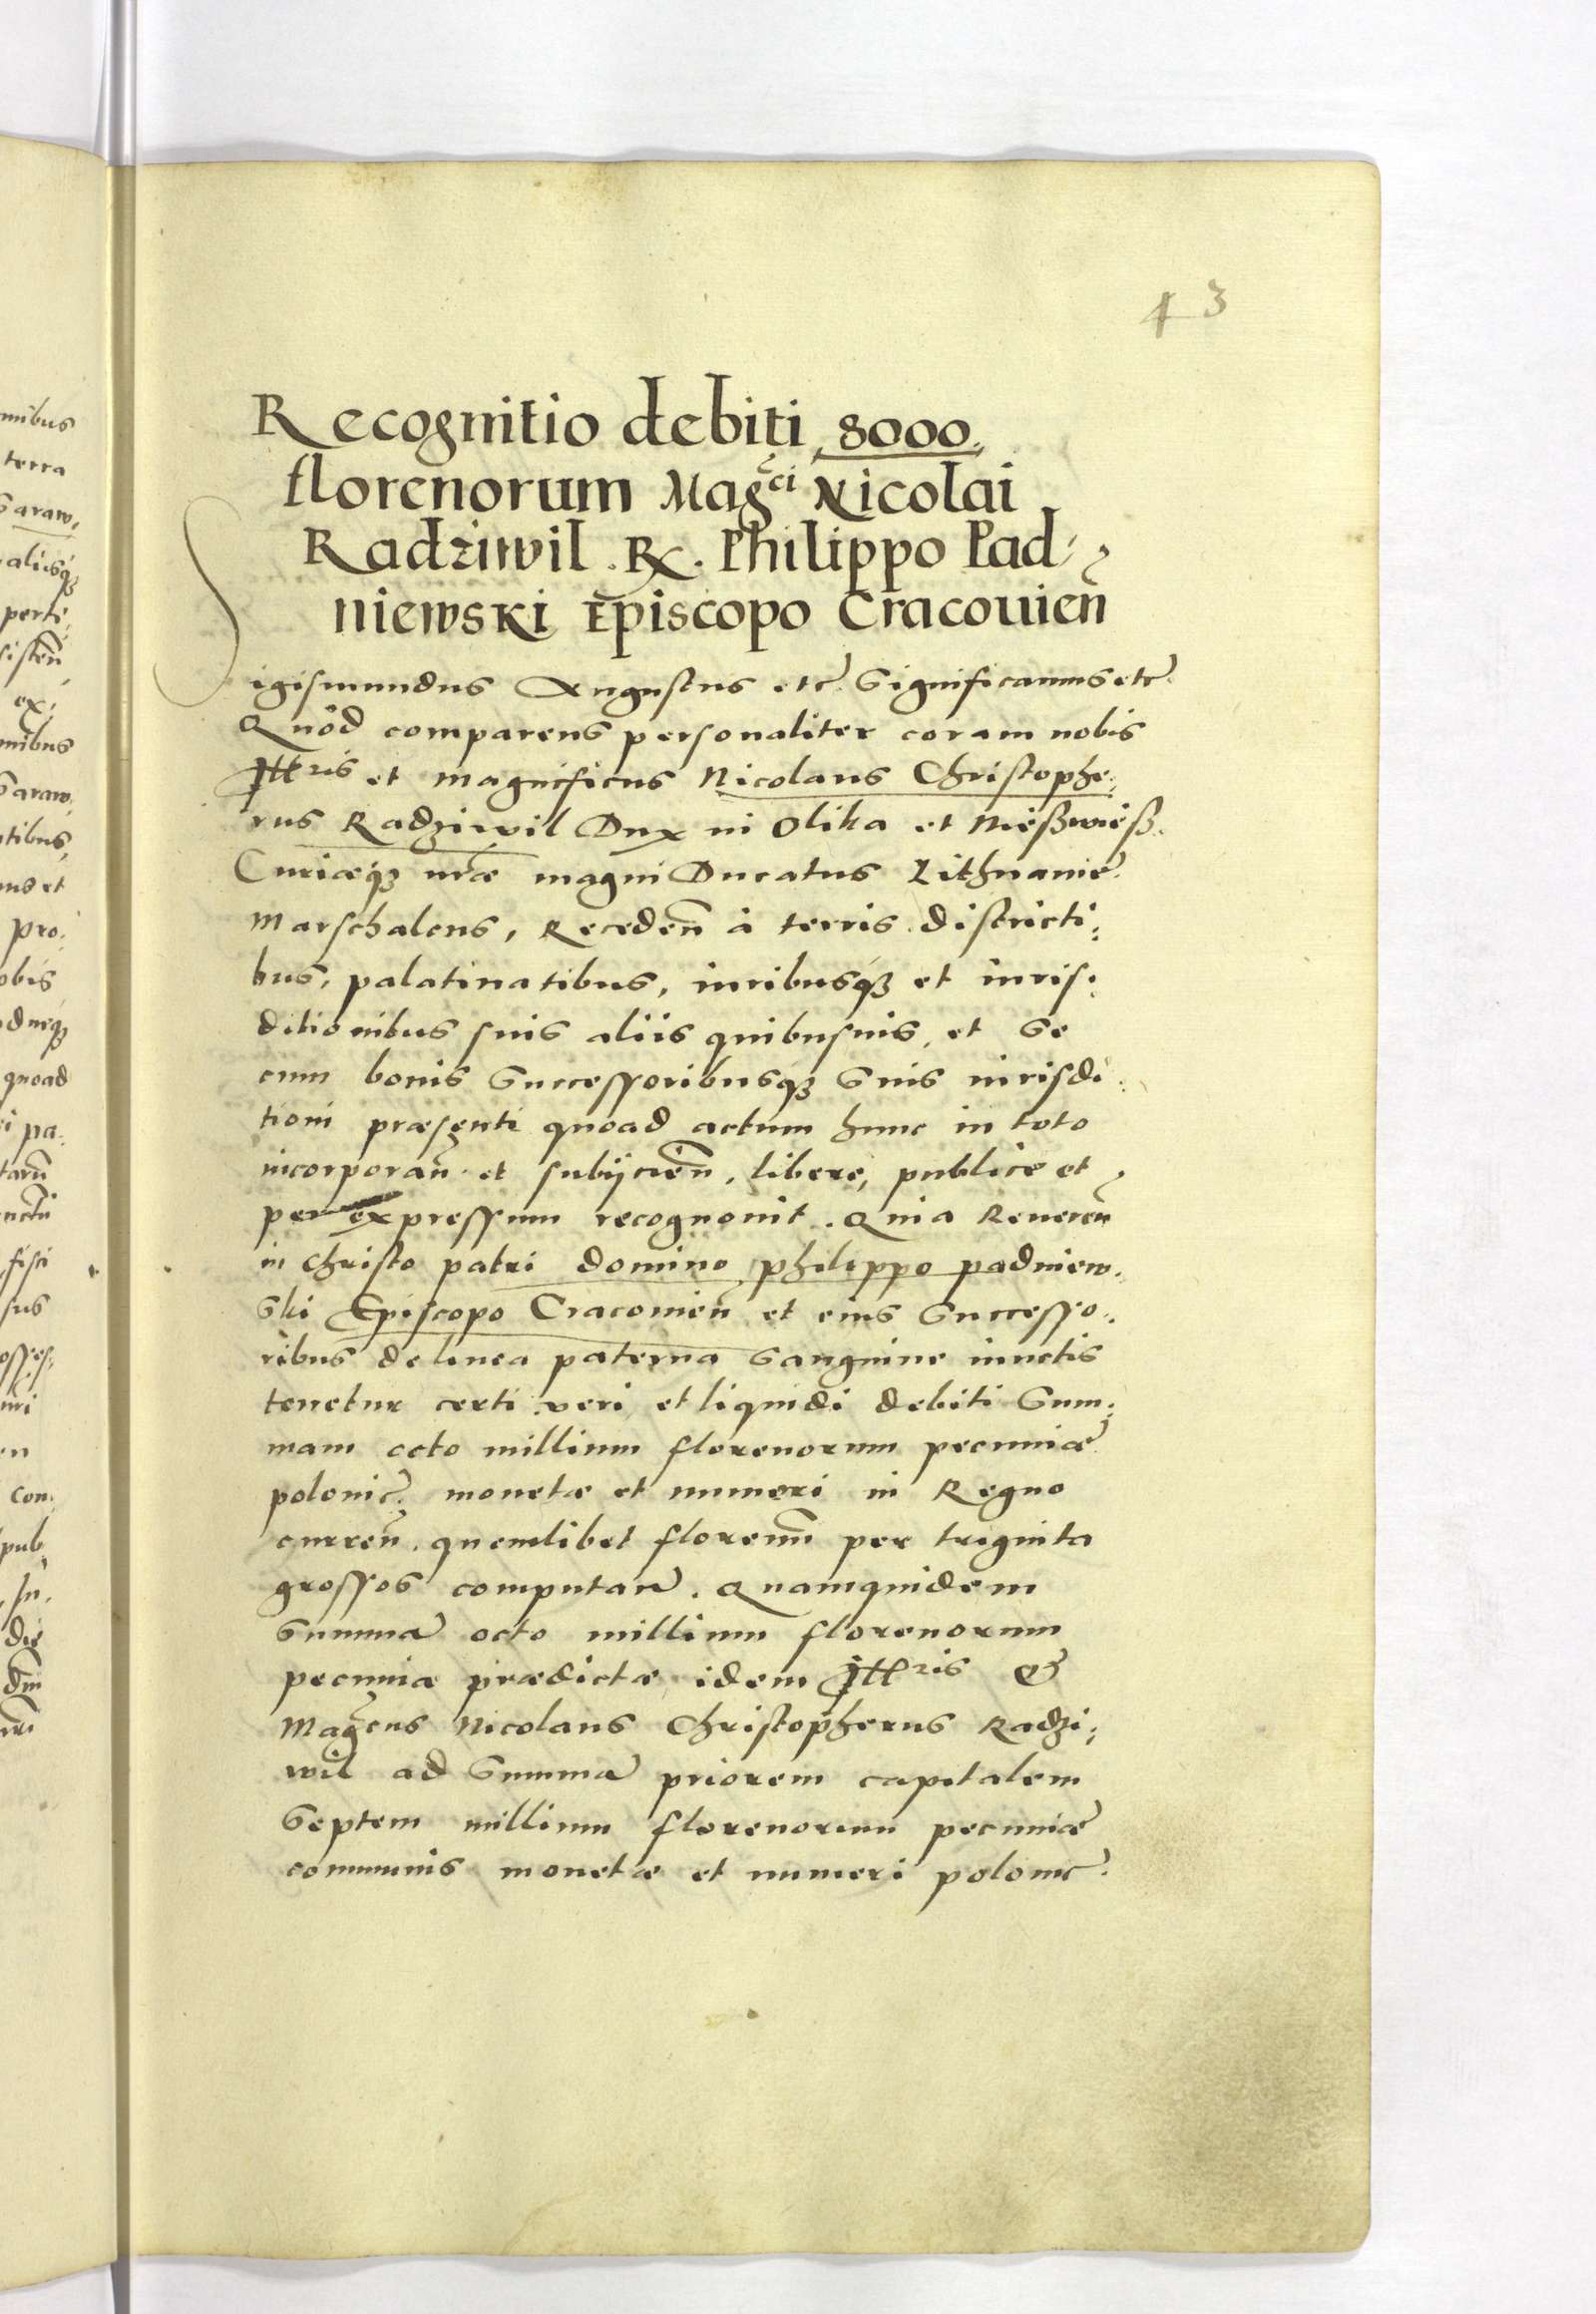 43
Recognitio debiti 8000
florenorum Mag^ci Nicolai
Radziwil . Rx . Philippo Pad
niewski Episcopo Cracouien̄
Sigismundus Augustus etc. Significamus etc.
Quòd comparens personaliter coram nobis
Ill^ris et magnificus Nicolaus Christophe:
rus Radziwil Dux in Olika et Nießwieß.
Curiæq; nr̄æ magni Ducatus Lithuaniæ
Marschalcus, Receden̄ à terris districti:
bus, palatinatibus, iuribusq; et iuris:
ditionibus suis aliis quibusuis, et se
cum bonis Successoribusq; Suis iurisdi:
tioni præsenti quoad actum hunc in toto
incorporan̄ et subijcien̄, libere, publice et
per expressum recognouit. Quia Reueren̄
in Christo patri domino philippo padniew:
ski Episcopo Cracouien̄ et eius Successo:
ribus de linea paterna Sanguine iunctis
tenetur certi veri et liquidi debiti Sum:
mam octo millium florenorum pecuniæ
polonic. monetæ et numeri in Regno
curren̄. quemlibet florenū per triginta
grossos computan̄. Quamquidem
Summā octo millium florenorum
pecuniæ prædictæ idem Ill^ris &
Mag^cus Nicolaus Christopherus Radzi:
wil ad Summā priorem capitalem
Septem millium florenorum pecuniæ
communis monetæ et numeri polonic.
nibus
terra
Saraw,
aliisq;
perti,
sisten̄
ex:
nibus
Saraw.
tibus,
et
pro:
obis
quoad
pa:
fisci
sus
uri
con:
pub